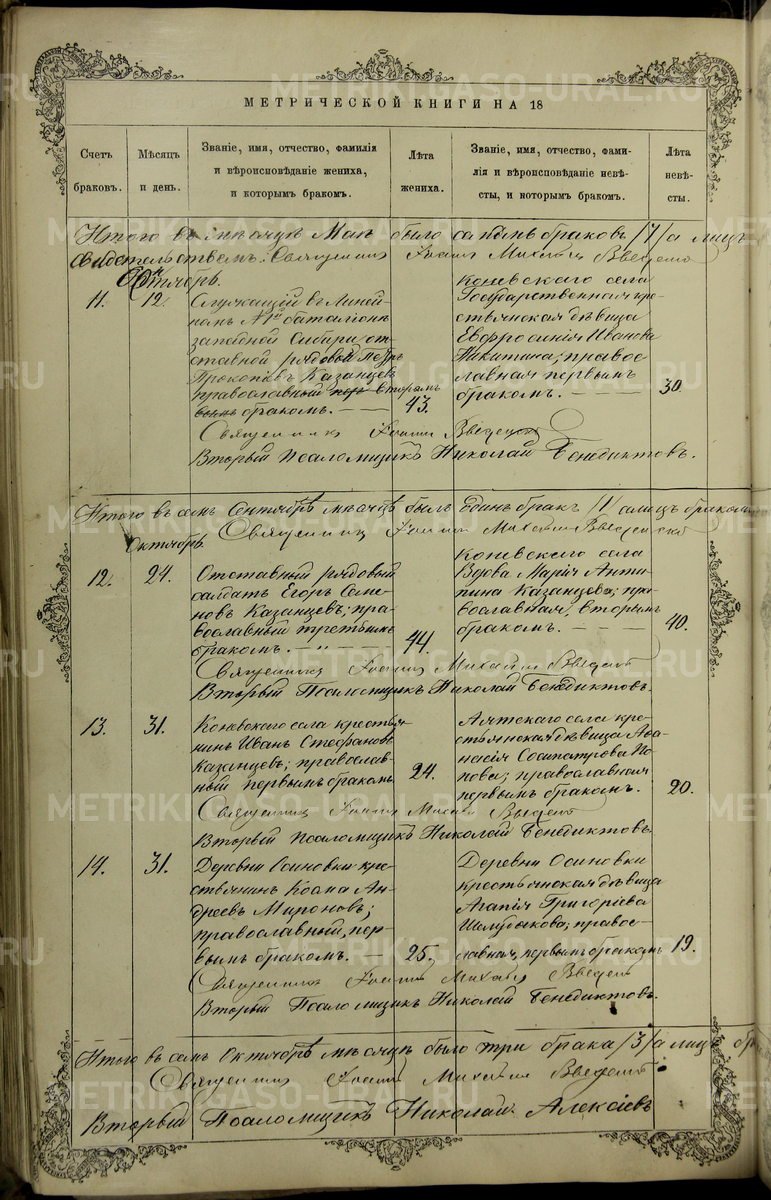 МЕТРИЧЕСКОЙ КНИГИ НА 18
Счетъ браковъ.
Мѣсяцъ и день.
Званіе, имя, отчество, фамилія
и вѣроисповѣданіе жениха,
и которымъ бракомъ.
Лѣта жениха.
Званіе, имя, отчество, фами-
лія и вѣроисповѣданіе невѣ-
сты, и которымъ бракомъ.
Лѣта невѣ-
сты.
Итого въ мѣсяцѣ Маѣ было браковъ /7/ а лицъ
Священникъ Іоаннъ Михайл Введен
11.
12.
Служащій въ Линей-
номъ №1й баталіонѣ
западной Сибири, от-
ставной рядовой Петръ
Прокопьевъ Казанцевъ
православный вторымъ
бракомъ.
43.
Коневскаго села
Государственная кре-
стьянская дѣвица
Евфросинія Иванова
Никитина; правос
лавная первымъ
бракомъ.
30.
Священникъ Іоаннъ Введен
Вторый Псаломщикъ Николай Бенедиктовъ.
Итого въ семъ Сентябрѣ мѣсяцѣ былъ Одинъ бракъ /1/ а лицъ
Священникъ Іоаннъ Михайл Введен
Октябрь.
12.
24.
Отставный рядовый
салдатъ Егоръ Семе-
новъ Казанцевъ; пра-
вославный третьимъ
бракомъ.
44.
Коневскаго села
Вдова Марія Анти-
пина Казанцова; пра-
вославная, вторымъ
бракомъ.
40.
Священникъ Іоаннъ Михайл Введен
Вторый Псаломщикъ Николай Бенедиктовъ.
13.
31.
Коневскаго села крестья-
нинъ Иванъ Стефановъ
Казанцевъ; православ-
ный первымъ бракомъ
24.
Аятскаго села кре-
стьянская дѣвица Аѳа-
насія Сосипатрова По-
пова; православная
первымъ бракомъ.
20.
Священникъ Іоаннъ Михайл Введен
Вторый Псаломщикъ Николай Бенедиктовъ
14.
31.
Деревни Осиновки кре-
стьянинъ Ан-
дреевъ Мироновъ;
православный, пер-
вымъ бракомъ.
25.
Деревни Осиновки
крестьянская дѣвица
Агапія Григоріева
правос-
лавная, первымъ бракомъ
19.
Священникъ Іоаннъ Михайл Введен
Вторый Псаломщикъ Николай Бенедиктовъ.
Итого въ семъ Октябрѣ мѣсяцѣ было три брака /3/ а лицъ
Священникъ Іоаннъ Михайл Введен
Вторый Псаломщикъ Николай Алексіевъ
METRIKI.GASO-URAL.RU